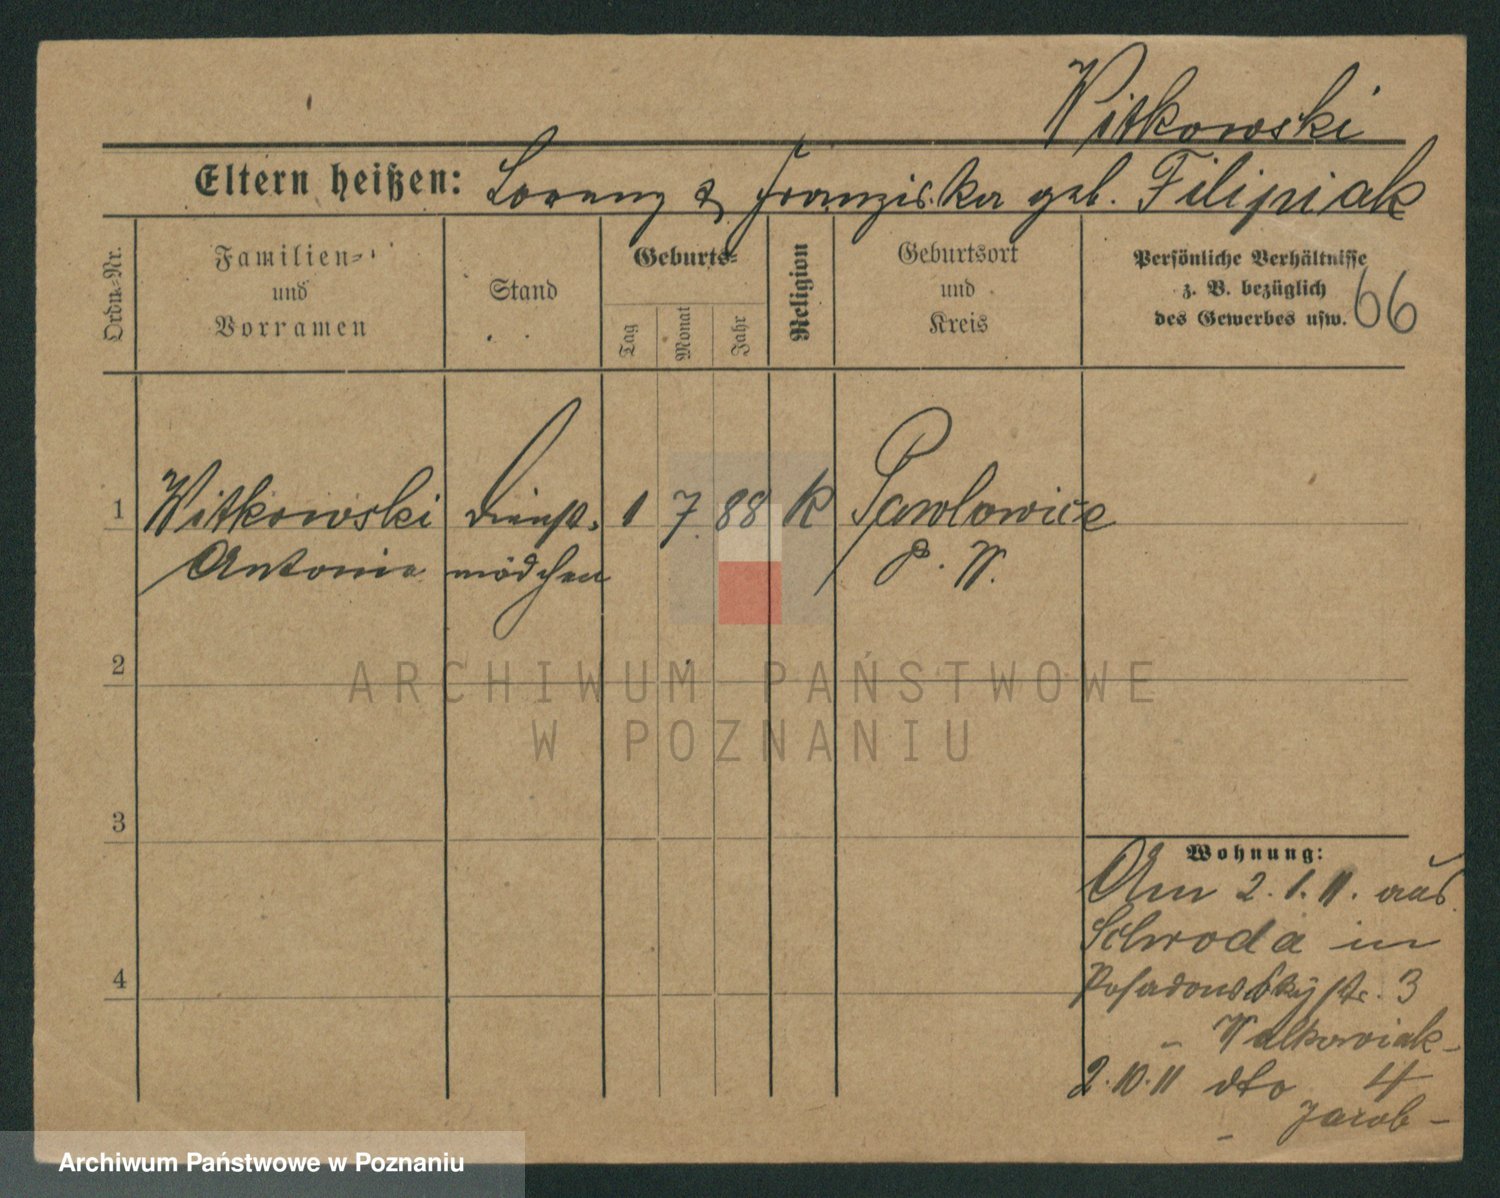 Witkowski
Eltern heißen: Lorenz & Franziska geb. Filipiak
Ordn.-Nr.
Familien-
und
Vornamen
Stand
Geburts-
Tag
Monat
Jahr
Religion
Geburtsort
und
Kreis
Persönliche Verhältnisse
z. B. bezüglich
des Gewerbes usw.
66
1 Witkowski Dienst- 1 7. 88 K Pawlowice
Antonie mädchen P. W.
2
3
4
Wohnung:
Am 2.1.11. aus
Schroda in
Posadowskystr. 3
- Walkowiak -
2.10.11 dto 4
- Jacob -
ARCHIWUM PAŃSTWOWE
W POZNANIU
Archiwum Państwowe w Poznaniu